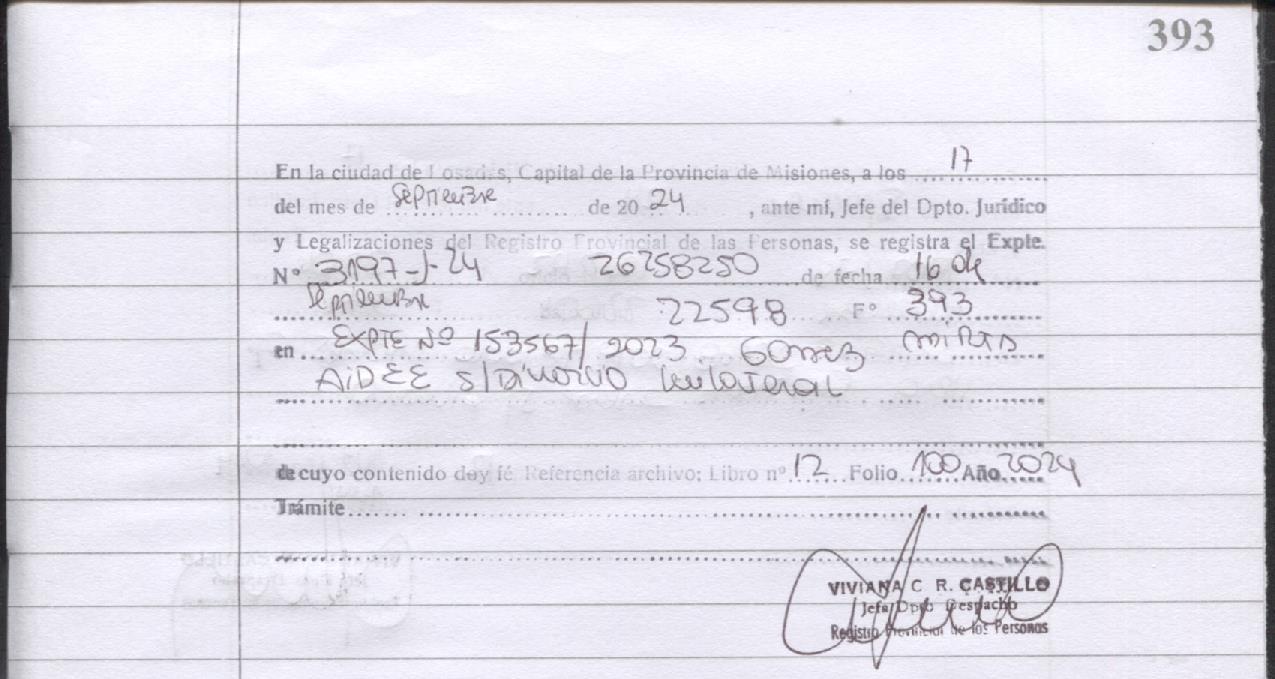 393
En la ciudad de Posadas, Capital de la Provincia de Misiones, a los 17
del mes de Septiembre de 20 24, ante mí, Jefe del Dpto. Jurídico
y Legalizaciones del Registro Provincial de las Personas, se registra el Expte.
N° 3197-J-24 26258250 de fecha 16 de
Septiembre 22598 F° 393
en EXPTE Nº 153567/2023 GOmez MIRTA
AIDEE S/Divorcio Unilateral
de cuyo contenido doy fé Referencia archivo: Libro nº 12 Folio 100 Año 2024
Trámite
VIVIANA C. R. CASTILLO
Jefa Dpto Despacho
Registro Provincial de los Personas